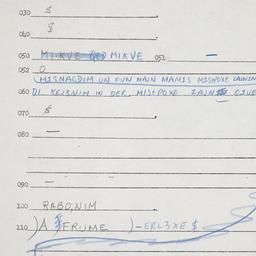 030 $
040 $
050 MIKVE 051 –
052 O
(MISNAGDIM UN FUN MAIN MAMIS MISHPOXE
060 DI KEJSNIM IN DER MISHPOXE ZAJN
070 $
080 —
090 –
100 RABONIM
110 )A $FRUME )-ERLЗXE $